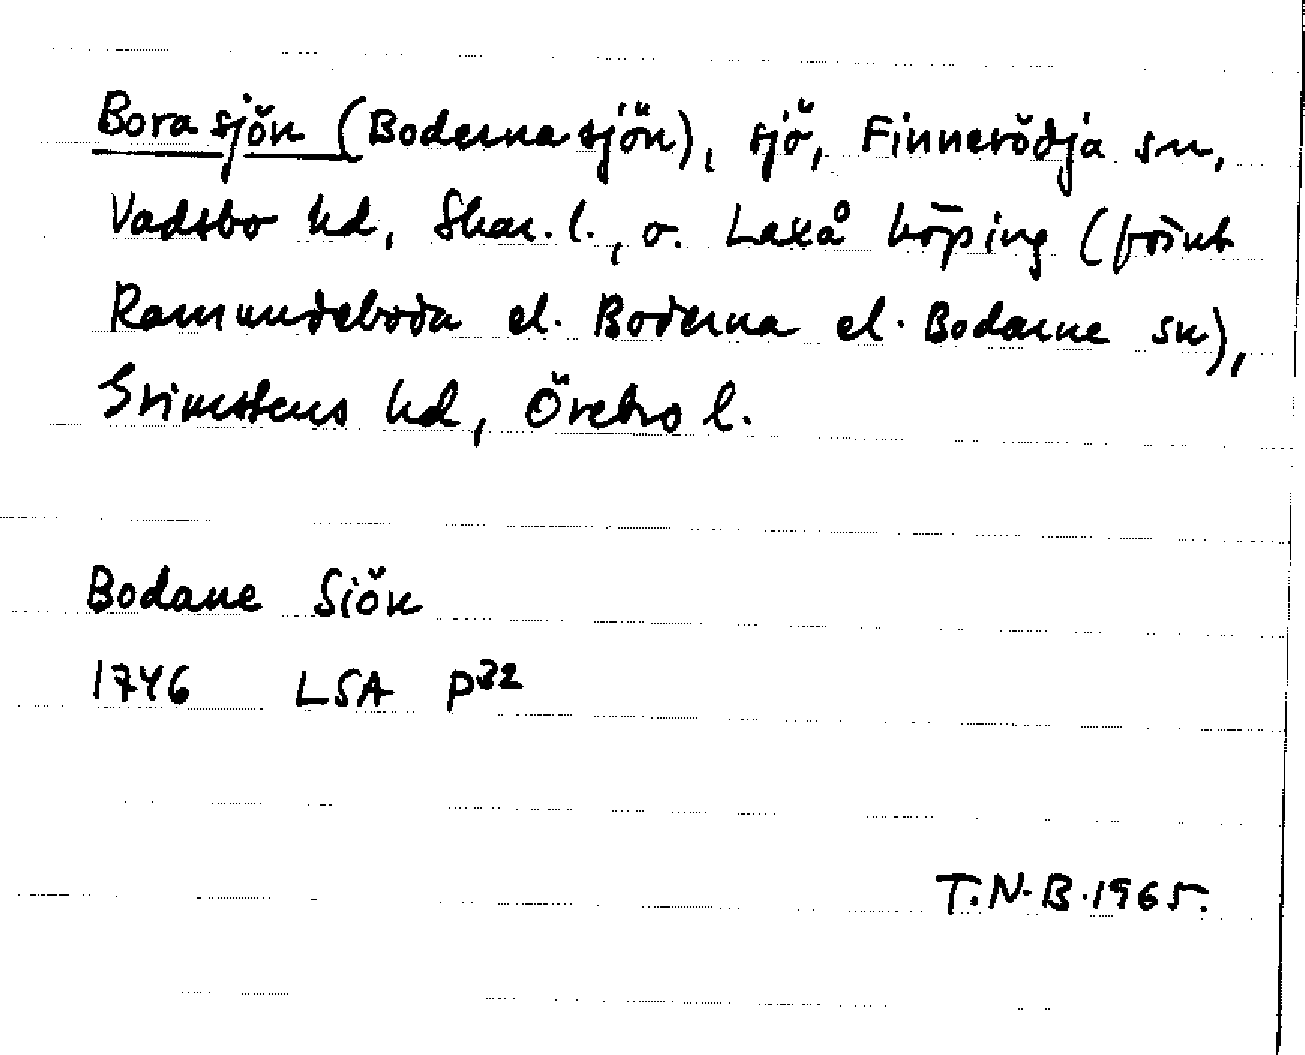 Borasjön (Bodernasjön), sjö, Finnerödja sn,
Vadsbo hd, Skar. l., o. Laxå köping (förut
Ramundeboda el. Boderna el. Bodarne sn),
Grimstens hd, Örebro l.
Bodane Siön
1746 LSA P32
T.N.B. 1965.